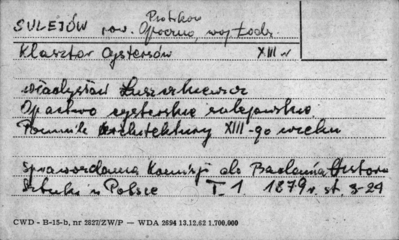 Piotrków
SULEJÓW pow. Opoczno, woj. Łódz.
Klasztor Cystersów XIII w
Władysław Łuszczkiewicz
Opactwo cysterskie sulejowskie
Pomnik architektury XIII-go wieku
Sprawozdania Komisji do Badania Historii
Sztuki w Polsce T. 1 1879 r. st. 3-24
CWD - B-15-b, nr 2827/ZW/P — WDA 2694 13.12.62 1.700.000